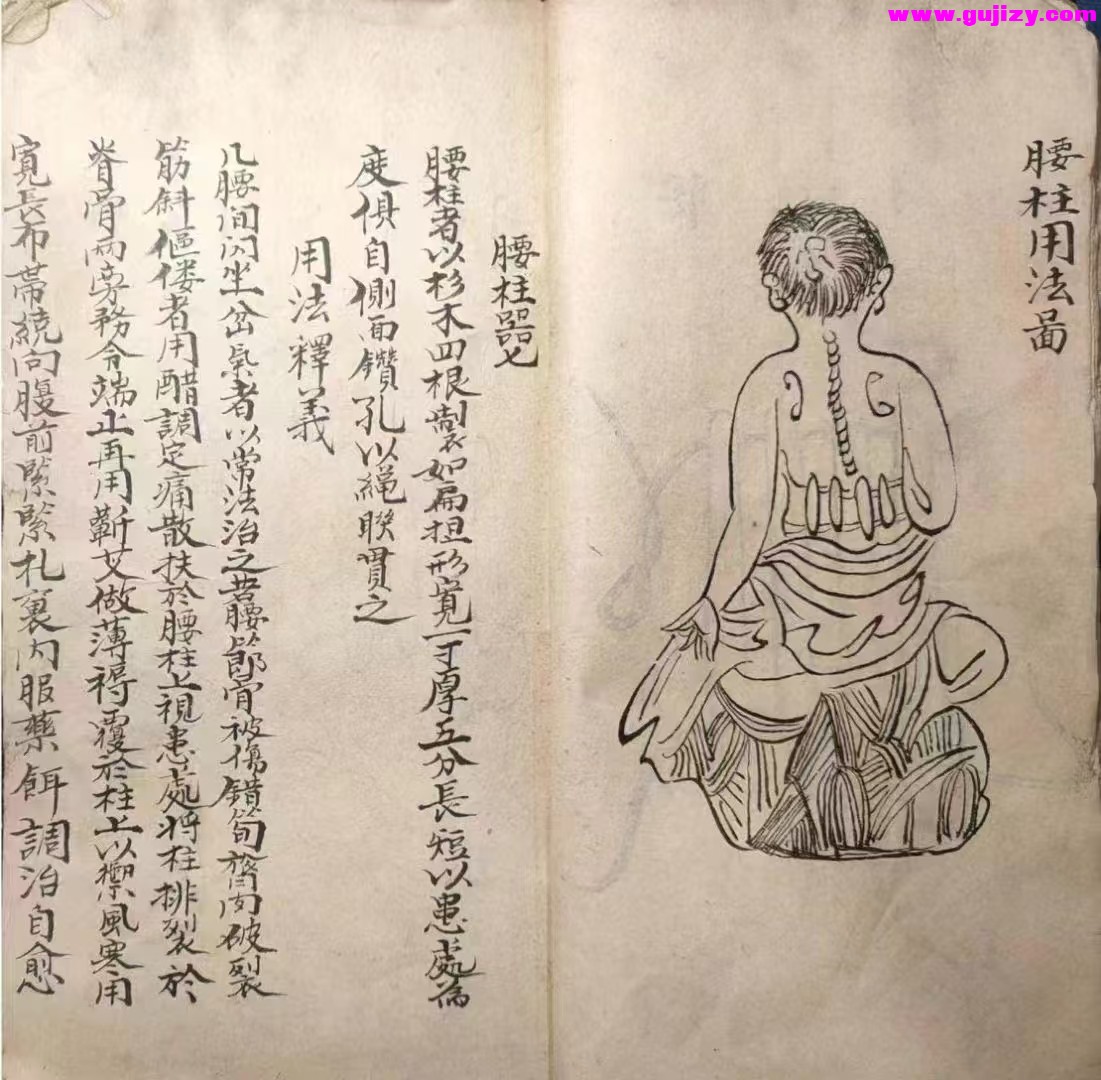 www.gujizy.com
腰柱用法啚
腰柱器七
腰柱者以杉木四根製如扁担形寬一寸厚五分長短以患處為
度俱自側面鑽孔以繩聯貫之
用法釋義
凡腰間閃坐岔氣者以常法治之若腰節骨被傷錯筍膂肉破裂
筋斜傴僂者用醋調定痛散扶於腰柱上視患處將柱排裂於
脊骨兩旁務令端正再用蘄艾做薄褥覆於柱上以禦風寒用
寬長布帶繞向腹前緊緊札裹内服藥餌調治自愈